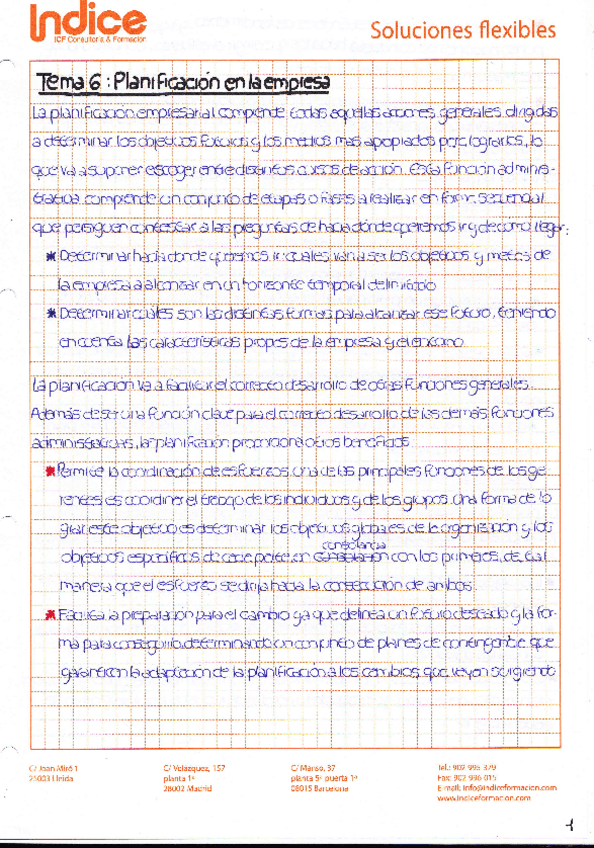 Indice
ICF Consultoría & Formación
Soluciones flexibles
Tema 6: Planificación en la empresa
La planificación empresarial comprende todas aquellas acciones generales dirigidas
a determinar los objetivos futuros y los medios más apropiados para lograrlos, lo
que va a suponer escoger entre distintos cursos de acción. Esta función adminis-
trativa comprende un conjunto de etapas o fases a realizar en forma secuencial
que persiguen contestar a las preguntas de hacia dónde queremos ir y de como llegar:
* Determinar hacia donde queremos ir: cuales van a ser los objetivos y metas de
la empresa a alcanzar en un horizonte temporal delimitado
* Determinar cuáles son las distintas formas para alcanzar ese futuro, teniendo
en cuenta las características propias de la empresa y el entorno.
La planificación va a facilitar el correcto desarrollo de otras funciones generales.
Además de ser una función clave para el correcto desarrollo de las demás funciones
administrativas, la planificación proporciona otros beneficios
* Permite la coordinación de esfuerzos. Una de las principales funciones de los ge-
rentes es coordinar el trabajo de los individuos y de los grupos. Una forma de lo
grar este objetivo es determinar los objetivos globales de la organización y los
consonancia
objetivos específicos de cada parte en con los primeros, de tal
manera que el esfuerzo se dirija hacia la consecución de ambos.
* Facilita la preparación para el cambio ya que delinea un futuro deseado y la for-
ma para conseguirlo determinando un conjunto de planes de contingencia que
garanticen la adaptación de la planificación a los cambios que vayan surgiendo
C/ Joan Miró 1
25003 Lleida
C/ Velazquez, 157
planta 1ª
28002 Madrid
C/ Manso, 37
planta 5ª puerta 1ª
08015 Barcelona
Tel.: 902 996 379
Fax: 902 996 015
E-mail: info@indiceformacion.com
www.indiceformacion.com
1